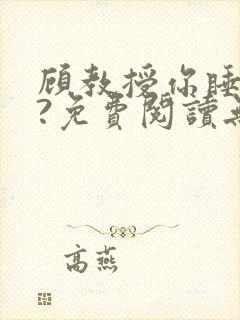 顾教授你睡
?免費閱讀
高燕